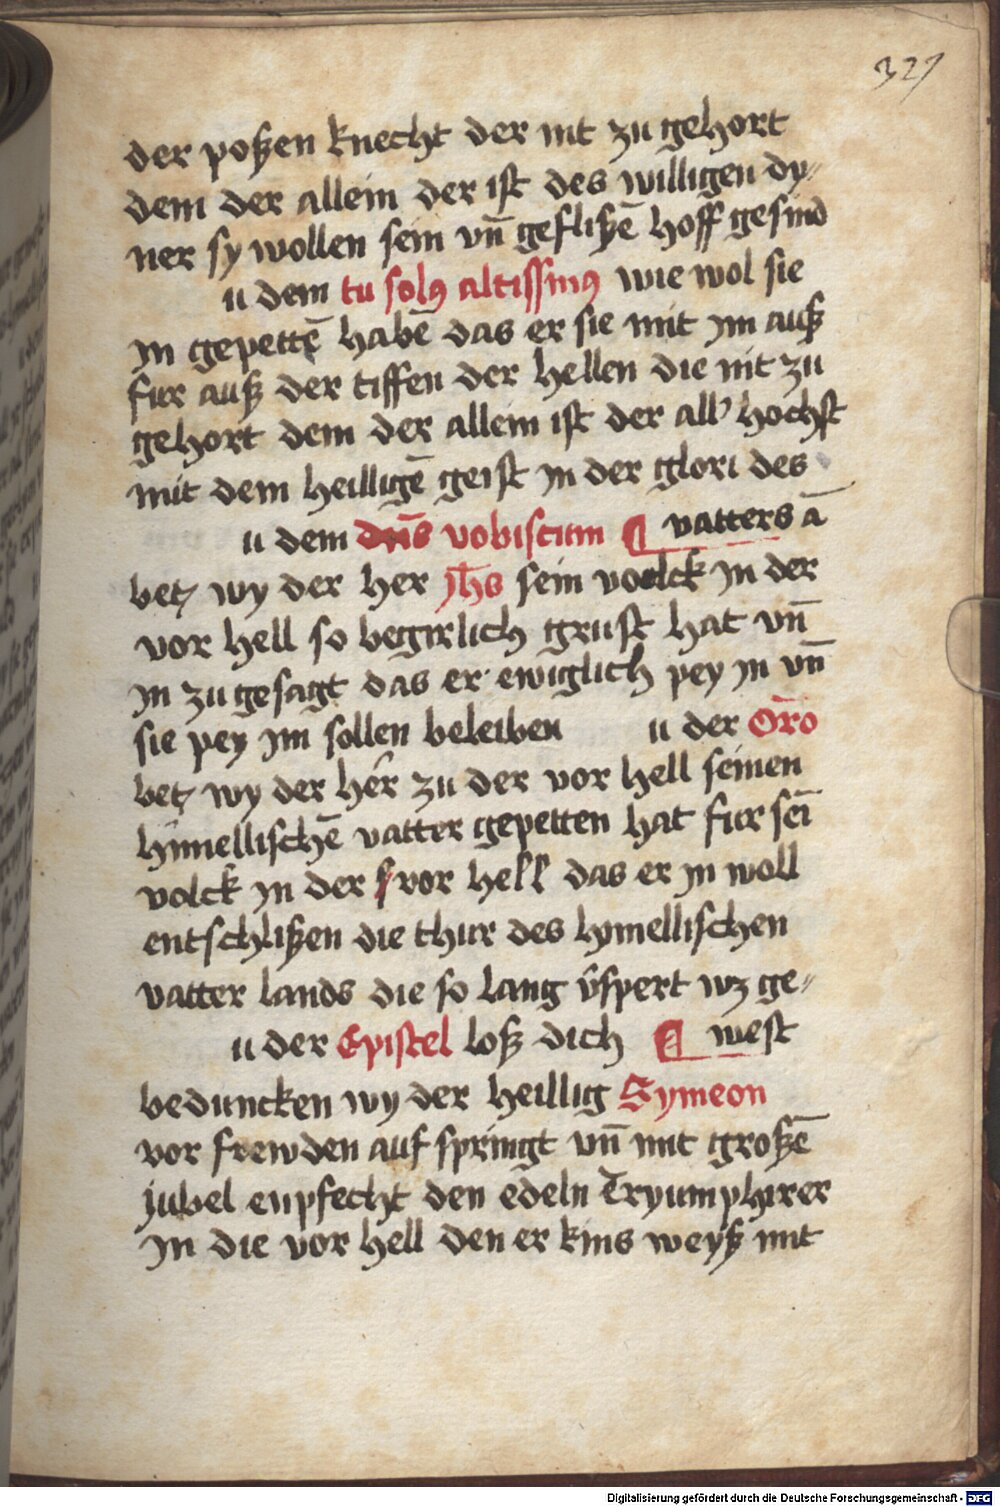 327
der poßen knecht der nit zu gehort
dem der allein der ist des willigen dy⸗
ner sy wollen sein vn̄ geflißē hoff gesind
u dem tu solꝯ altissimꝯ wie wol sie
jn gepettē habē das er sie mit jm auß
fur auß der tiffen der hellen die nit zu
gehort dem der allein ist der all' hochst
mit dem heilligē geist jn der glori des
u dem dn̄s vobiscum ¶ vatters ā
betꝫ wy der her jh̄s sein voolck jn der
vor hell so begirlich grust hat vn̄
jn zu gesagt das er ewiglich pey jn vn̄
sie pey jm sollen beleiben u der Or̄o
betꝫ wy der her zu der vor hell seinen
himellischē vatter gepetten hat fur sei̅
volck jn der vor hell das er jn woll
entschlißen die thur des hymellischen
vatter lands die so lang v̄spert wz ge⸗
u der Epistel loß dich ¶ west
beduncken wy der heillig Symeon
vor frewden auf springt vn̄ mit großē
jubel enpfecht den edeln Tryumphirer
jn die vor hell den er kins weyß mit
Digitalisierung gefördert durch die Deutsche Forschungsgemeinschaft - DFG